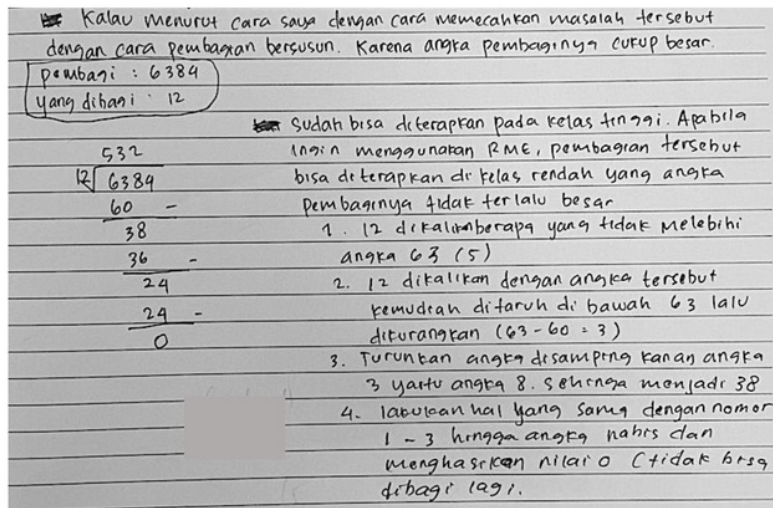 Kalau menurut cara saya dengan cara memecahkan masalah tersebut
dengan cara pembagian bersusun. Karena angka pembaginya cukup besar.
pembagi : 6384
yang dibagi : 12
532
12 6384
60 -
38
36 -
24
24 -
0
sudah bisa diterapkan pada kelas tinggi. Apabila
ingin menggunakan RME, pembagian tersebut
bisa diterapkan di kelas rendah yang angka
pembaginya tidak terlalu besar
1. 12 dikalikan berapa yang tidak melebihi
angka 63 (5)
2. 12 dikalikan dengan angka tersebut
kemudian ditaruh di bawah 63 lalu
dikurangkan (63 - 60 = 3)
3. Turunkan angka disamping kanan angka
3 yaitu angka 8. sehingga menjadi 38
4. lakukan hal yang sama dengan nomor
1 - 3 hingga angka habis dan
menghasilkan nilai 0 (tidak bisa
dibagi lagi.